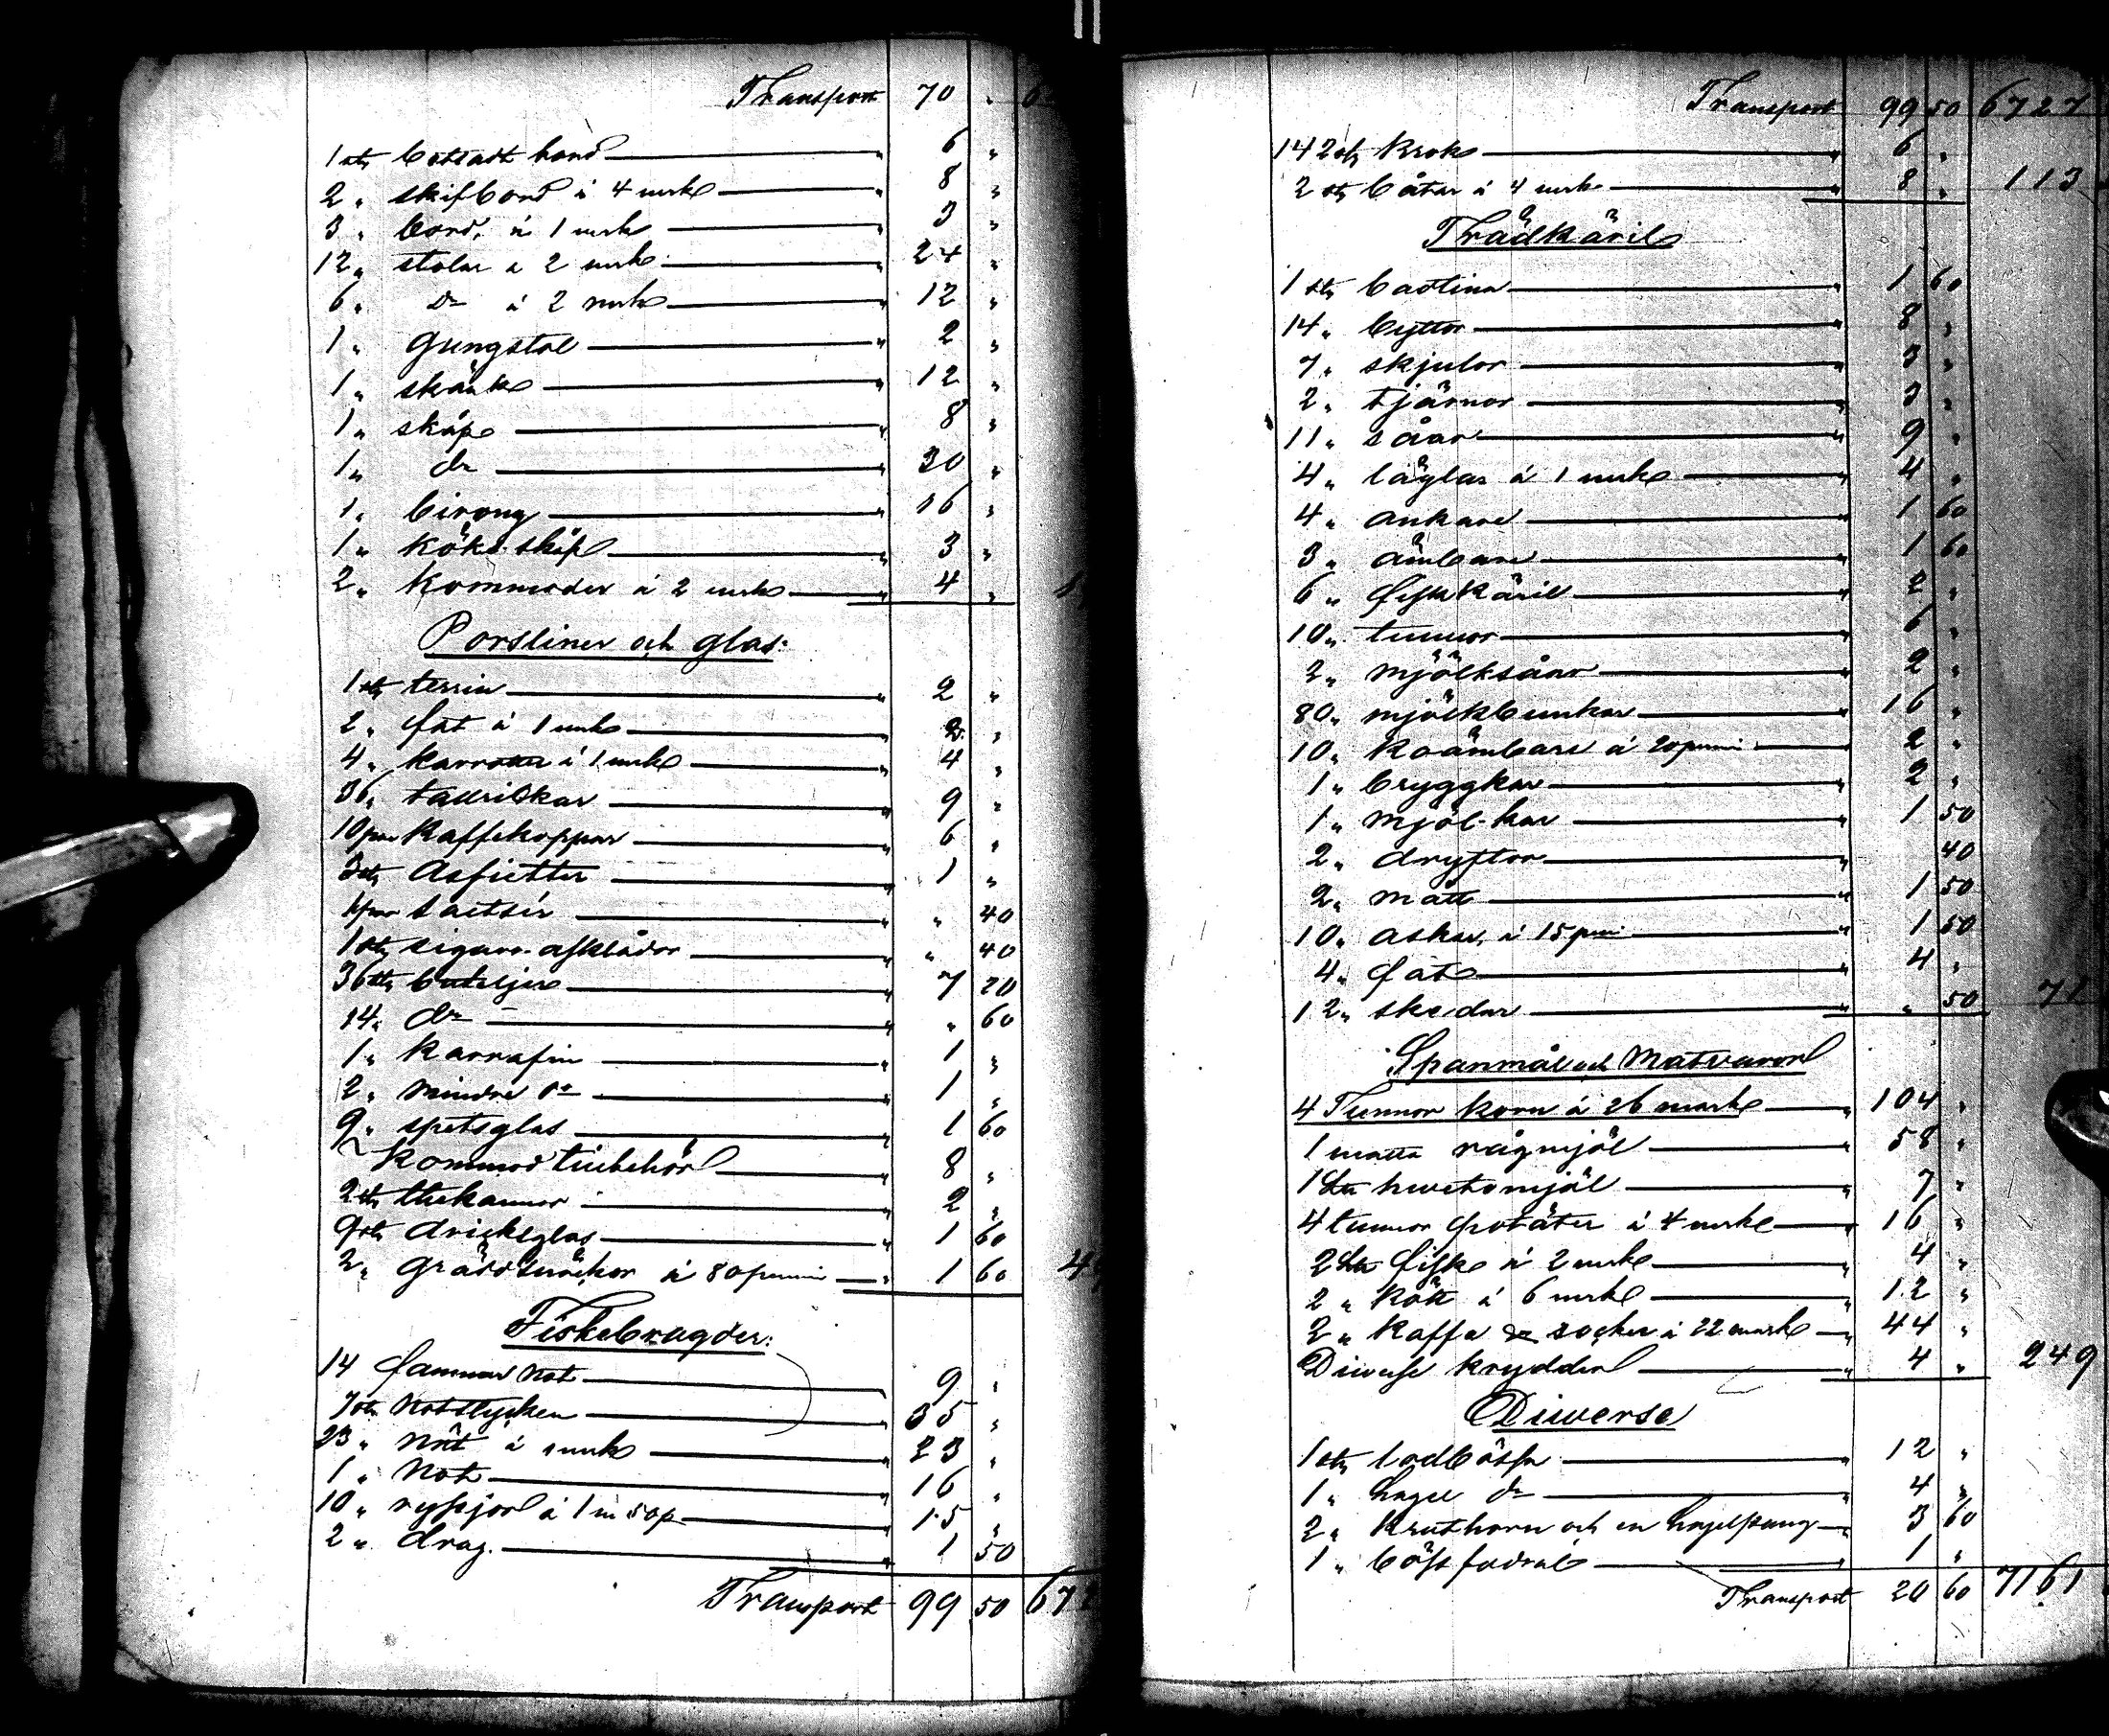 Transport 70 „
1 st. bord 6 „
2 „ skifbord á 4 mrk „ 8 „
3 „ bord á 1 mrk „ 3 „
12 „ stolar á 2 mrk „ 24 „
6 „ do á 2 mrk „ 12 „
1 „ Gungstol „ 2 „
1 „ skänk „ 12 „
1 „ skåp „ 8 „
1 „ do „ 30 „
1 „ birong „ 16 „
1 „ köks skåp „ 3 „
2 „ Kommoder á 2 mrk „ 4 „
Porsliner och glas:
1 st. terrin „ 2 „
2 „ fat á 1 mrk „ 2 „
4 „ karrotter á 1 mrk „ 4 „
36 „ tallrickar „ 9 „
10 par Kaffekoppar „ 6 „
3 st. Assietter „ 1 „
1 par saltsér „ „ 40
1 st. sigarr-asklådor „ „ 40
36 st. buteljer „ 7 20
14 „ do „ „ 60
1 „ Karrafin „ 1 „
2 „ mindre do „ 1 „
9 „ spetsglas „ 1 60
Kommod tillbehör „ 8 „
2 st. thekannor „ 2 „
9 st. dricksglas „ 1 60
2 „ gräddsnäckor á 80 penni „ 1 60
Fiskebragder:
14 famnar not „ 9 „
7 st. Notstycken „ 35 „
23 „ Nät á 1 mrk „ 23 „
1 „ Not „ 16 „
10 „ ryssjor á 1 m 50 p „ 15 „
2 „ drag. „ 1 50
Transport 99 50 672
Transport 99 50 6727
142 st. krok „ 6 „
2 st. båtar á 4 mrk „ 8 „ 113
Trädkäril
1 st. badtina „ 1 60
14 „ byttor „ 8 „
7 „ skjulor „ 3 „
2 „ tjärnor „ 3 „
11 „ såar „ 9 „
4 „ läglar á 1 mrk „ 4 „
4 „ ankare „ 1 60
3 „ ämbare „ 1 60
6 „ fiskkäril „ 2 „
10 „ tunnor „ 6 „
2 „ mjölksåar „ 2 „
80 „ mjölkbunkar „ 16 „
10 „ koämbare á 20 penni „ 2 „
1 „ bryggkar „ 2 „
1 „ mjöl-kar „ 1 50
2 „ dryftor „ 40
2 „ mått „ 1 50
10 „ askar, á 15 pni „ 1 50
4 „ fat „ 4 „
12 „ skedar „ „ 50 71
Spanmål och Matvaror
4 Tunnor korn á 26 mark „ 104 „
1 matta rågmjöl „ 58 „
1 L℔ hvetemjöl „ 7 „
4 tunnor potäter á 4 mrk „ 16 „
2 L℔ fisk á 2 mrk „ 4 „
2 „ Kött á 6 mrk „ 12 „
2 „ Kaffe & socker á 22 mark „ 44 „
Diverse kryddor „ 4 „ 249
Diverse
1 st. lodbössa „ 12 „
1 „ hagel do „ 4 „
2 „ Kruthorn och en hagelpung „ 3 60
1 „ bössfodral „ 1 „
Transport 20 60 7161